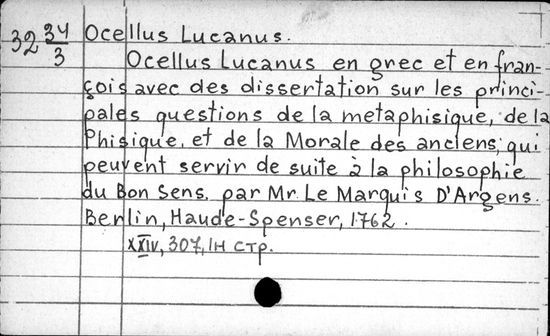 32 34/3
Ocellus Lucanus.
Ocellus Lucanus en grec et en fran-
çois avec des dissertation sur les princi-
pales questions de la metaphisique, de la
Phisique, et de la Morale des anciens; qui
peuvent servir de suite à la philosophie
du Bon Sens. par Mr. Le Marquis D'Argens.
Berlin, Haude-Spenser, 1762.
XXIV, 307, 1Н стр.